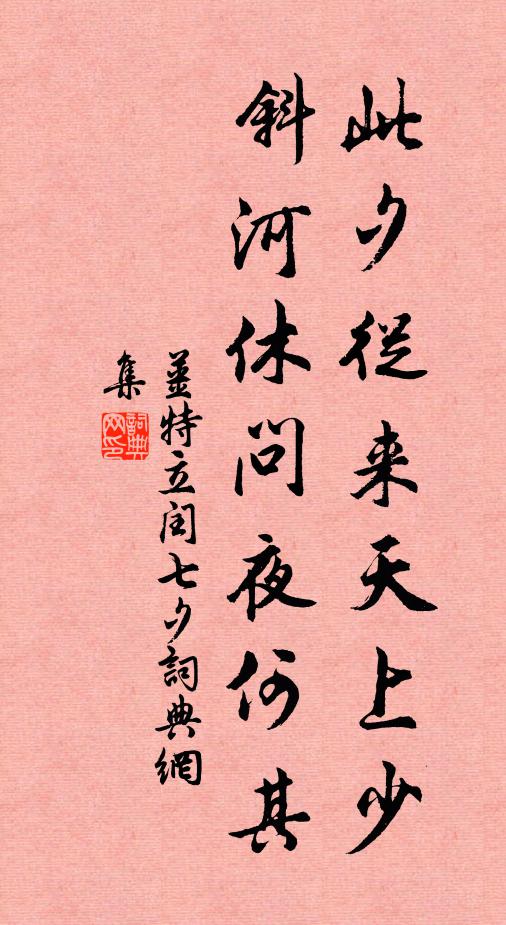 此夕從来天上少
斜河休問夜何其
姜特立闰七夕詞典網
集
詞典網印